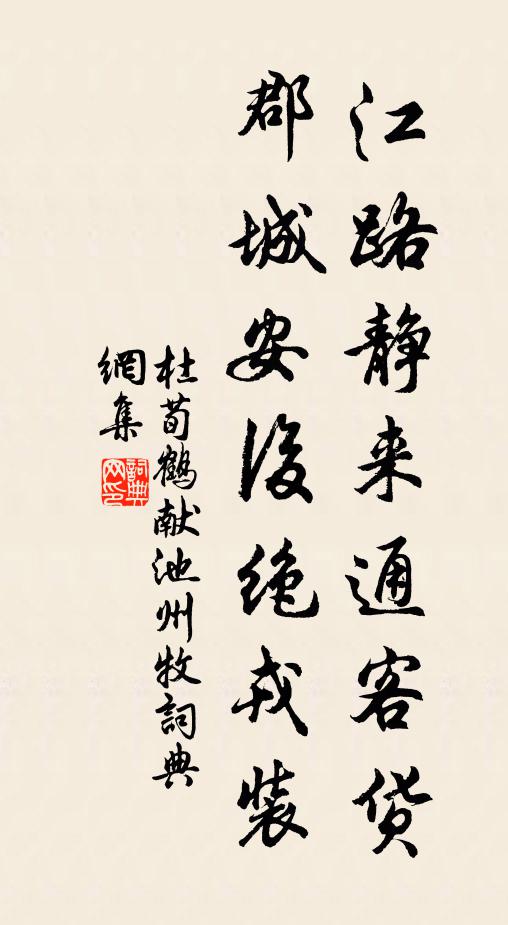 江路静来通客货
郡城安後绝戎装
杜荀鶴献池州牧詞典
網集
詞典
网印